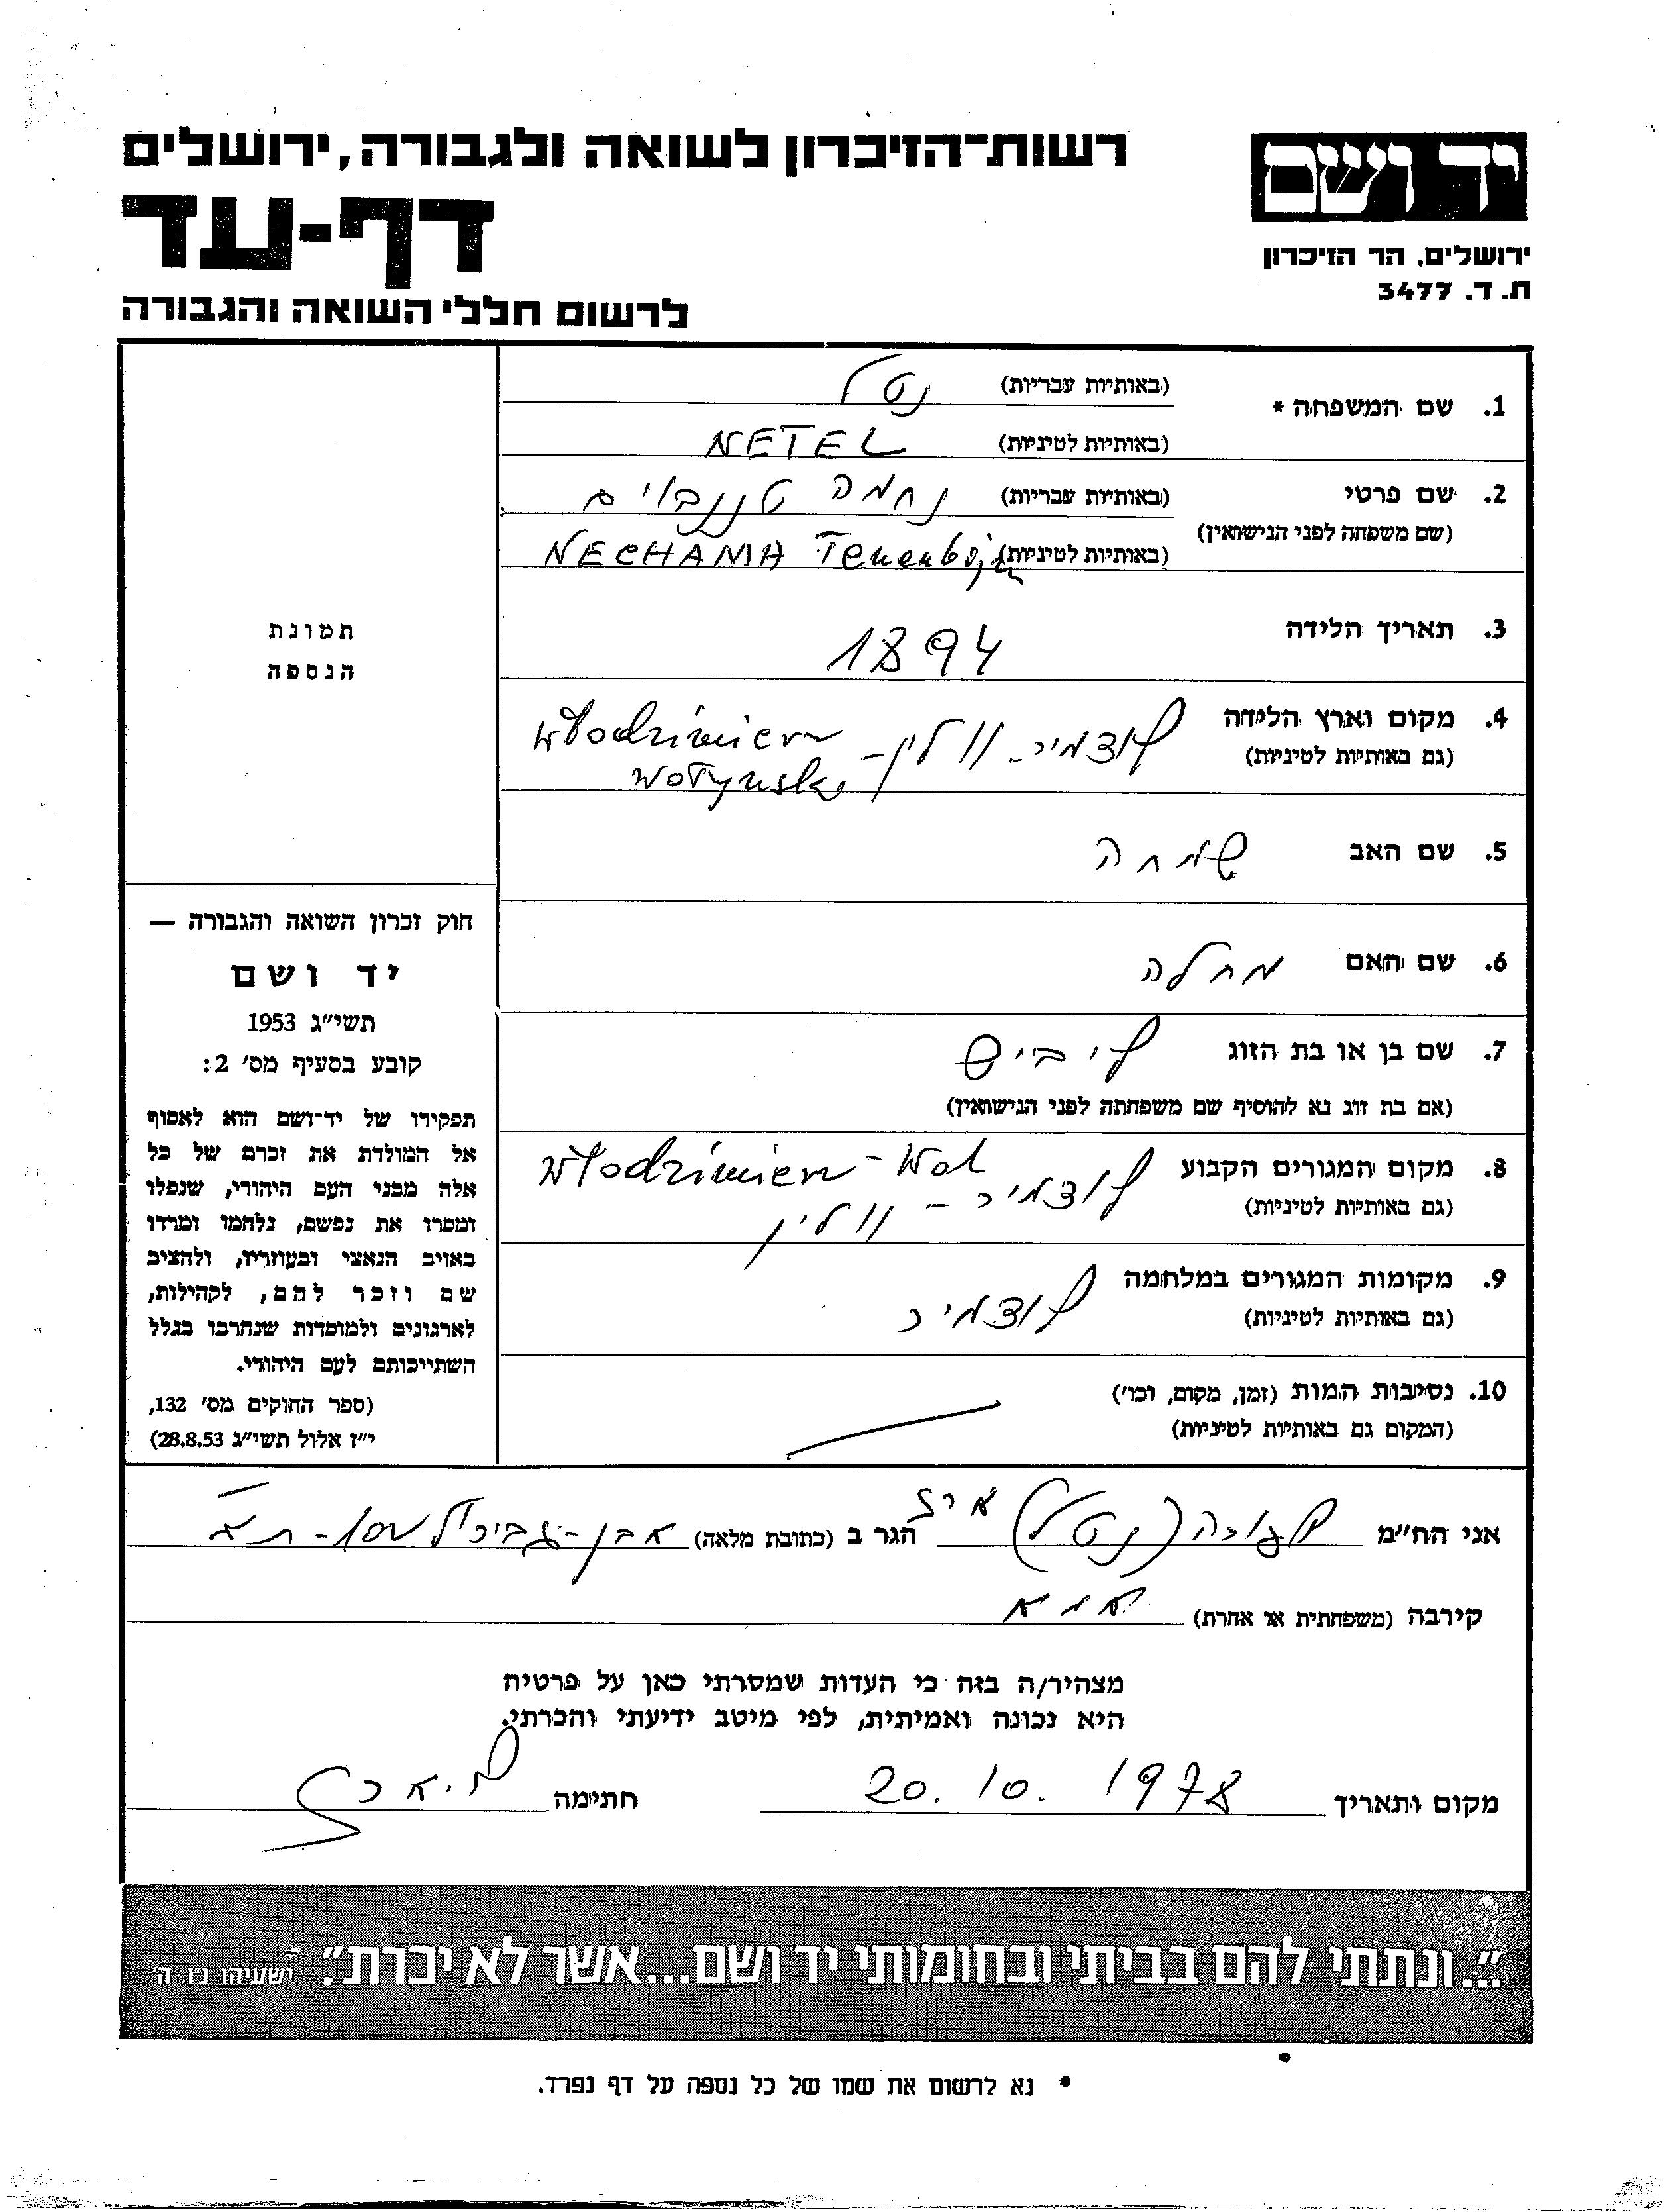 רשות־הזיכרון לשואה ולגבורה, ירושלים
דף-עד
לרשום חללי השואה והגבורה
יד ושם
ירושלים, הר הזיכרון
ת. ד. 3477
1. שם המשפחה * (באותיות עבריות) נטל
(באותיות לטיניות) NETEL
2. שם פרטי (באותיות עבריות) נחמה טננבוים
(שם משפחה לפני הנישואין)
(באותיות לטיניות) NECHAMA Tenenbojm
3. תאריך הלידה 1894
4. מקום וארץ הלידה לודמיר - וולין - Włodzimierz
(גם באותיות לטיניות) Wołyński
5. שם האב שמחה
6. שם האם מחלה
7. שם בן או בת הזוג לייביש
(אם בת זוג נא להוסיף שם משפחתה לפני הנישואין)
8. מקום המגורים הקבוע Włodzimierz - Wol
(גם באותיות לטיניות) לודמיר - וולין
9. מקומות המגורים במלחמה
(גם באותיות לטיניות) לודמיר
10. נסיבות המות (זמן, מקום, וכו')
(המקום גם באותיות לטיניות)
תמונת
הנספה
חוק זכרון השואה והגבורה —
יד ושם
תשי״ג 1953
קובע בסעיף מס' 2:
תפקידו של יד־ושם הוא לאסוף
אל המולדת את זכרם של כל
אלה מבני העם היהודי, שנפלו
ומסרו את נפשם, נלחמו ומרדו
באויב הנאצי ובעוזריו, ולהציב
שם וזכר להם, לקהילות,
לארגונים ולמוסדות שנחרבו בגלל
השתייכותם לעם היהודי.
(ספר החוקים מס' 132,
י״ז אלול תשי״ג 28.8.53)
אני הח״מ (נטל) הגר ב (כתובת מלאה) אבן-גבירול - ת״א
קירבה (משפחתית או אחרת) אמא
מצהיר/ה בזה כי העדות שמסרתי כאן על פרטיה
היא נכונה ואמיתית, לפי מיטב ידיעתי והכרתי.
מקום ותאריך 20. 10. 1978 חתימה
״...ונתתי להם בביתי ובחומותי יד ושם...אשר לא יכרת״. ישעיהו נ״ו, ה'
* נא לרשום את שמו של כל נספה על דף נפרד.